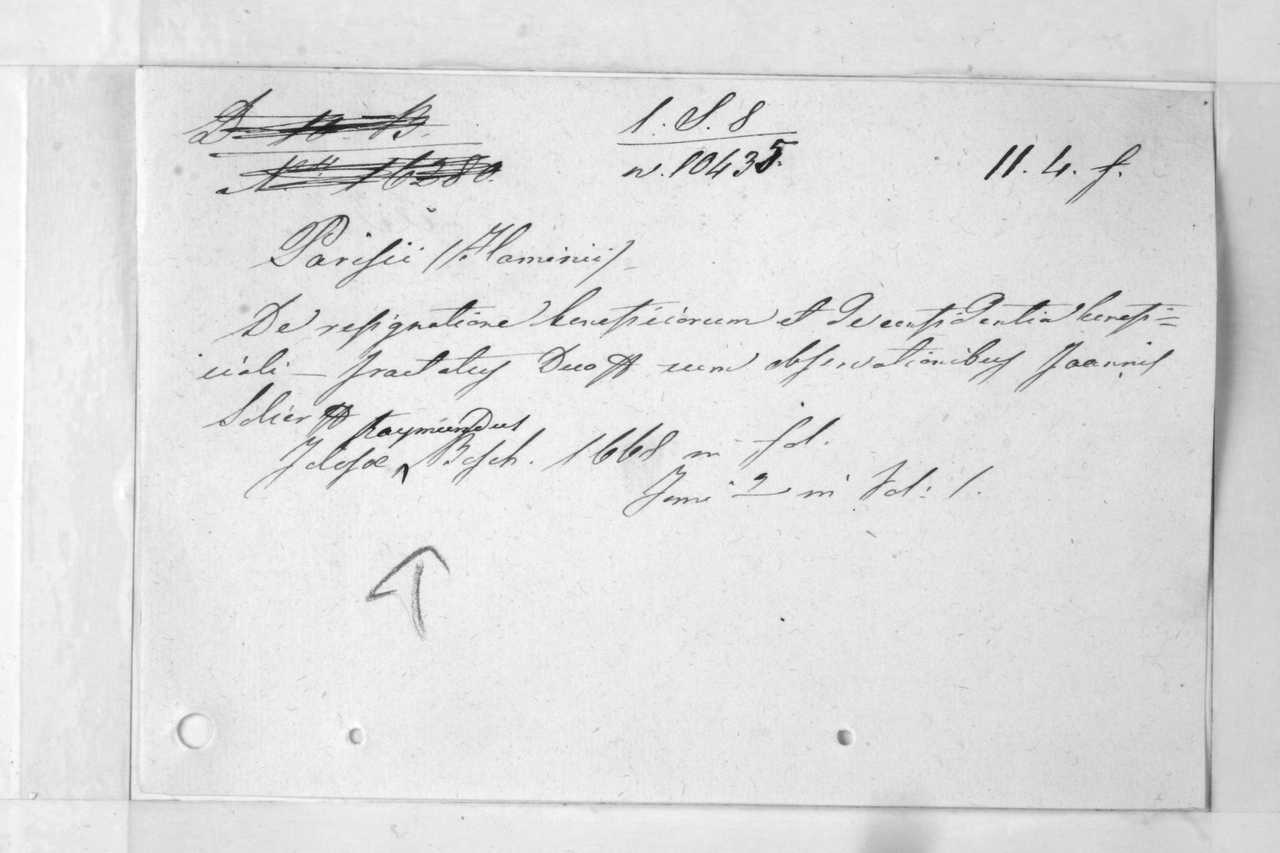 D. 10. B. 1. S. 8
N. 16280. n. 10435. 11. 4. f.
Parisii (Flaminii)
De resignatione beneficiorum et de confidentia benefi=
ciali – Tractatus Duo cum observationibus Joannis
Solier
Raymundus
Tolosæ Bosch. 1668 in fol.
Tomi 2 in Vol: 1.